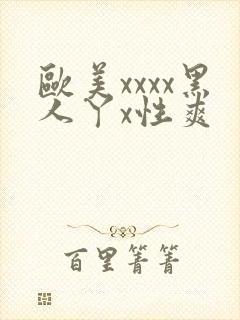 歐美xxxx黑
人丫x性爽
百里菁菁